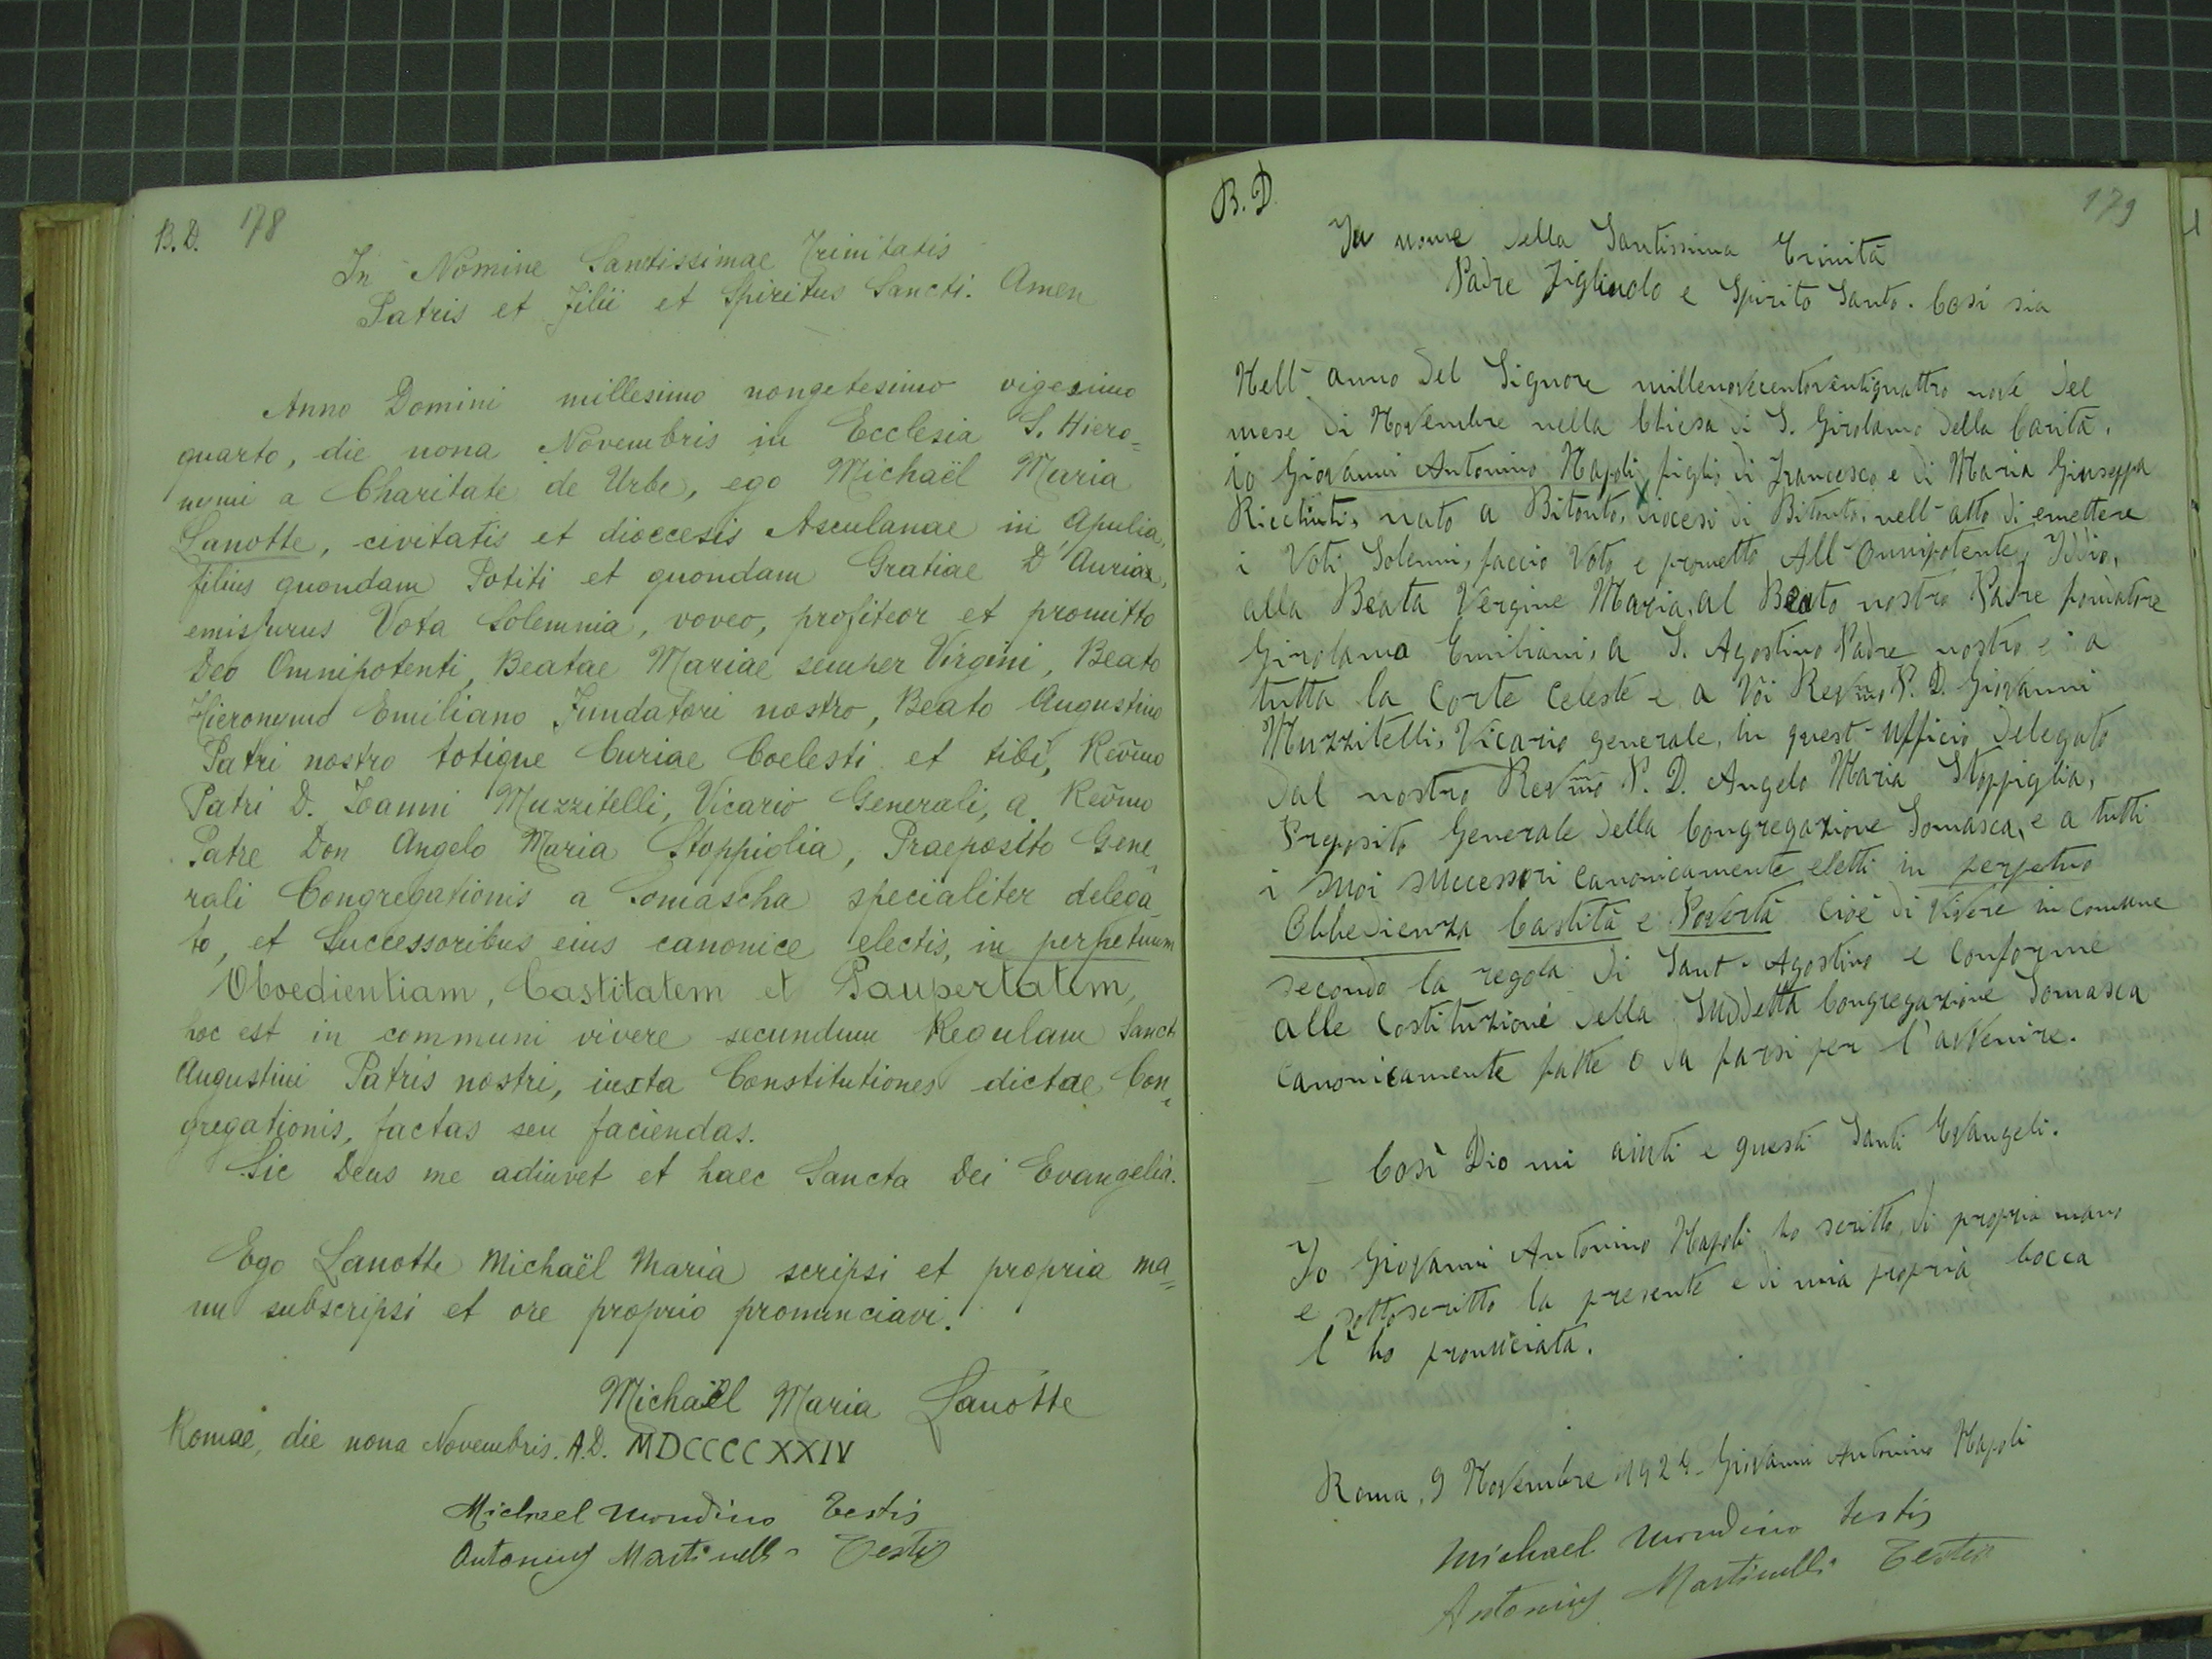 B. D. 178
In Nomine Santissimae Trinitatis
Patris et Filii et Spiritus Sancti. Amen
Anno Domini millesimo nongetesimo vigesimo
quarto, die nona Novembris in Ecclesia S. Hiero=
nymi a Charitate de Urbe, ego Michaël Maria
Lanotte, civitatis et dioecesis Asculanae in Apulia,
filius quondam Potiti et quondam Gratiae D'Auriae,
emissurus Vota Solemnia, voveo, profiteor et promitto
Deo Omnipotenti, Beatae Mariae semper Virgini, Beato
Hieronymo Emiliano Fundatori nostro, Beato Augustino
Patri nostro totique Curiae Coelesti et tibi, Rev̄mo
Patri D. Ioanni Muzzitelli, Vicario Generali, a Rev̄mo
Patre Don Angelo Maria Stoppiglia, Praeposito Gene=
rali Congregationis a Somascha specialiter delega=
to, et Successoribus eius canonice electis, in perpetuum
Oboedientiam, Castitatem et Paupertatem,
hoc est in communi vivere secundum Regulam Sancti
Augustini Patris nostri, iuxta Constitutiones dictae Con=
gregationis, factas seu faciendas.
Sic Deus me adiuvet et haec Sancta Dei Evangelia.
Ego Lanotte Michaël Maria scripsi et propria ma=
nu subscripsi et ore proprio pronunciavi.
Michaël Maria Lanotte
Romae, die nona Novembris. A.D. MDCCCCXXIV
Michael Mondino Testis
Antonius Martinelli Testis
B. D. 179
In nome della Santissima Trinità
Padre Figliuolo e Spirito Santo. Così sia
Nell' anno del Signore millenovecentoventiquattro nove del
mese di Novembre nella Chiesa di S. Girolamo della Carità,
io Giovanni Antonino Napoli figlio di Francesco e di Maria Giuseppa
Ricciuti, nato a Bitonto, diocesi di Bitonto, nell' atto di emettere
i Voti Solenni, faccio Voto e prometto All' Onnipotente Iddio,
alla Beata Vergine Maria, al Beato nostro Padre fondatore
Girolamo Emiliani, a S. Agostino Padre nostro e a
tutta la Corte Celeste e a Voi Revmo P. D. Giovanni
Muzzitelli, Vicario generale, in quest' Ufficio delegato
dal nostro Revmo P. D. Angelo Maria Stoppiglia,
Preposito Generale della Congregazione Somasca, e a tutti
i suoi successori canonicamente eletti in perpetuo
Obbedienza Castità e Povertà cioè di vivere in comune
secondo la regola di Sant' Agostino e conforme
alle Costituzioni della Suddetta Congregazione Somasca
canonicamente fatte o da farsi per l'avvenire.
Così Dio mi aiuti e questi Santi Evangeli.
Io Giovanni Antonino Napoli ho scritto di propria mano
e sottoscritto la presente e di mia propria bocca
l' ho pronuciata.
Roma, 9 Novembre 1924 - Giovanni Antonino Napoli
Michael Mondino testis
Antonius Martinelli Testis